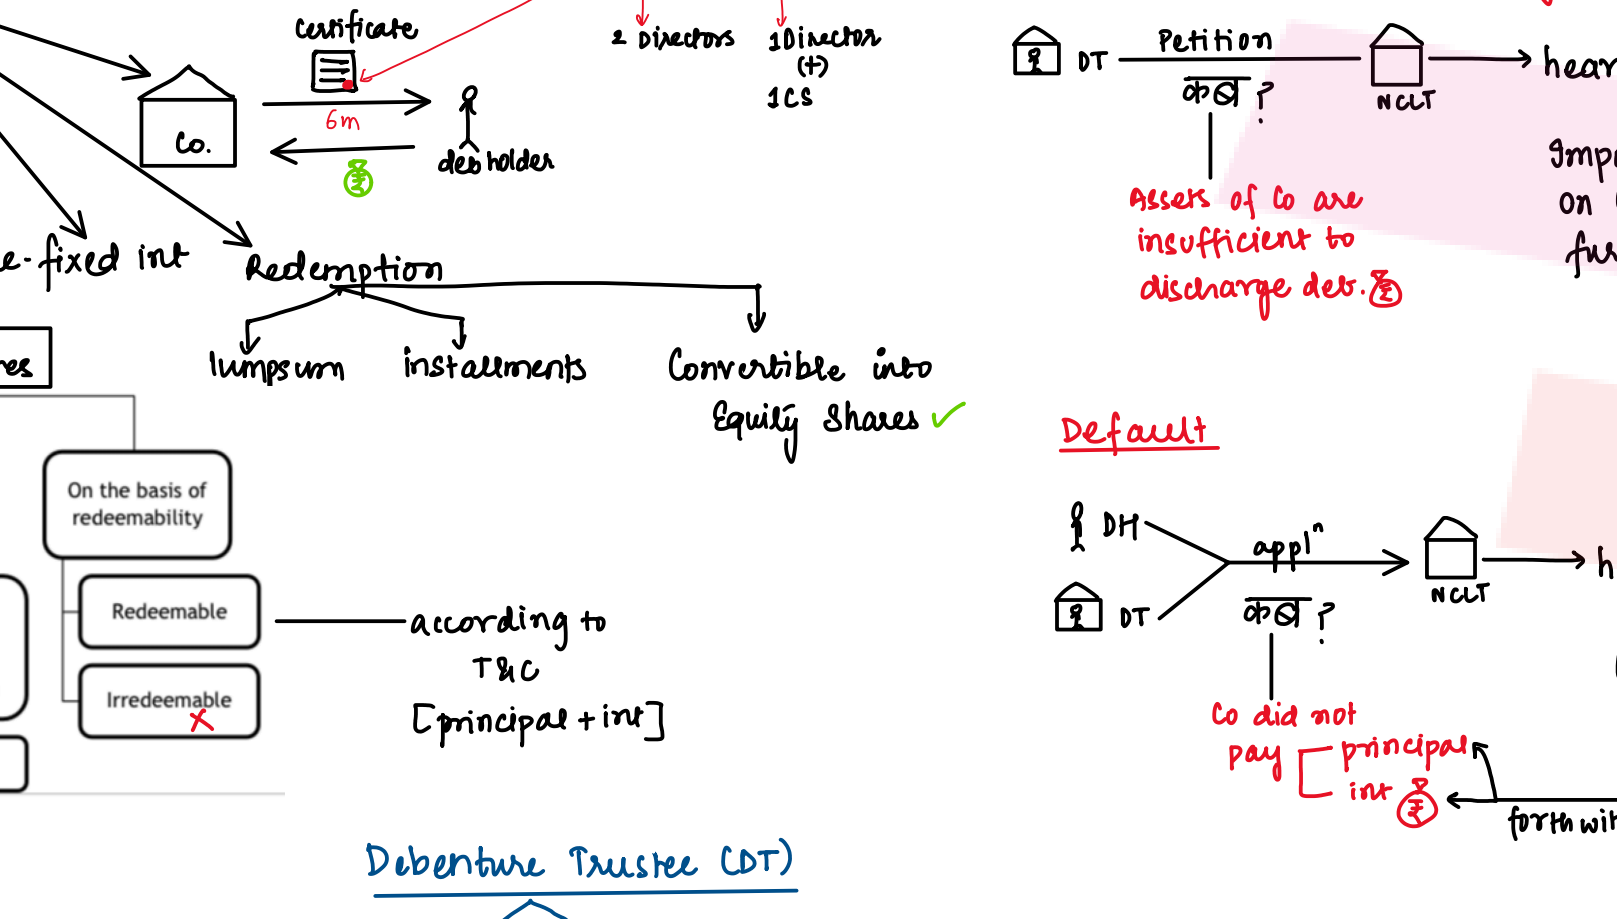 Certificate
Co.
6m
debholder
2 Directors
1 Director
(+)
1 CS
e-fixed int
Redemption
lumpsum
installments
Convertible into
Equity Shares
On the basis of
redeemability
Redeemable
Irredeemable
according to
T&C
[principal + int]
Debenture Trustee (DT)
DT
Petition
कब ?
NCLT
hear
Assets of Co are
insufficient to
discharge deb. ₹
Imp
on
fur
Default
DH
DT
applⁿ
कब ?
NCLT
h
Co did not
pay
principal
int ₹
forthwit